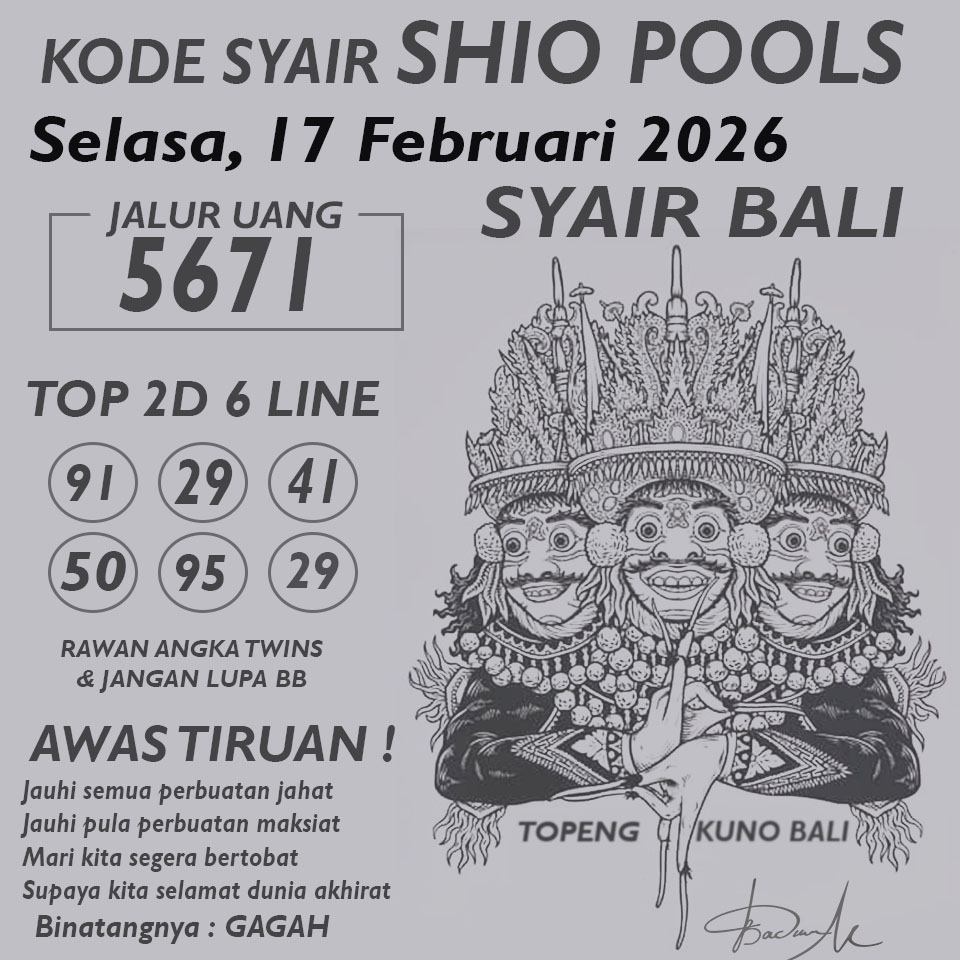 KODE SYAIR SHIO POOLS
Selasa, 17 Februari 2026
SYAIR BALI
JALUR UANG
5671
TOP 2D 6 LINE
91 29 41
50 95 29
RAWAN ANGKA TWINS
& JANGAN LUPA BB
AWAS TIRUAN !
Jauhi semua perbuatan jahat
Jauhi pula perbuatan maksiat
Mari kita segera bertobat
Supaya kita selamat dunia akhirat
Binatangnya : GAGAH
TOPENG KUNO BALI